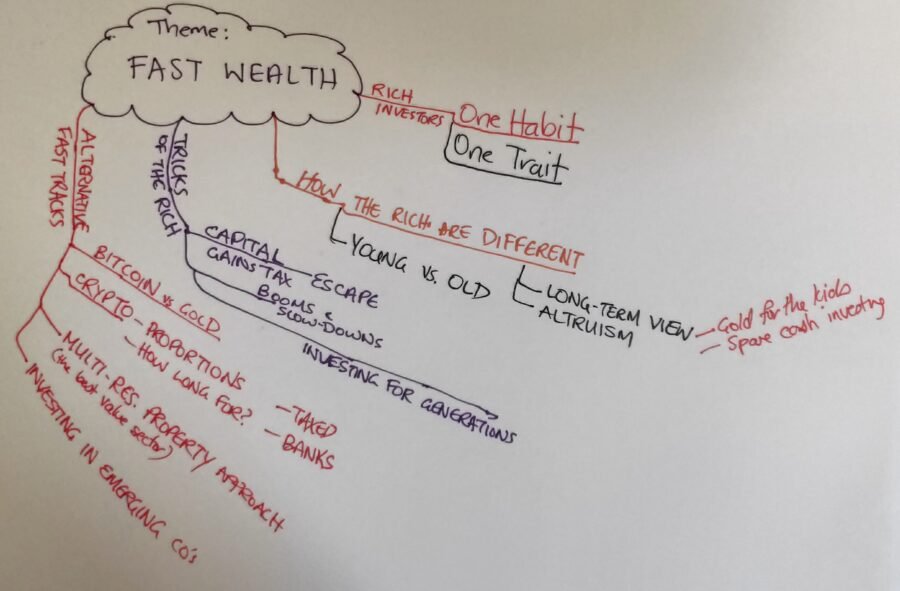 Theme:
FAST WEALTH
RICH
INVESTORS
One Habit
One Trait
HOW THE RICH ARE DIFFERENT
YOUNG VS. OLD
LONG-TERM VIEW
ALTRUISM
- Gold for the kids
- Spare cash investing
TRICKS
OF THE RICH
CAPITAL
GAINS TAX ESCAPE
BOOMS &
SLOW-DOWNS
INVESTING FOR GENERATIONS
ALTERNATIVE
FAST TRACKS
BITCOIN vs GOLD
CRYPTO - PROPORTIONS
- HOW LONG FOR?
- TAXED
- BANKS
MULTI-RES. PROPERTY APPROACH
(the best value sector)
INVESTING IN EMERGING CO's